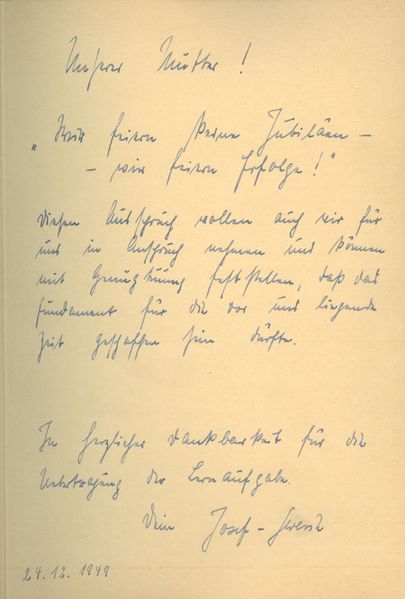 Unserer Mutter!
„Wir feiern keine Jubiläen –
– wir feiern Erfolge!"
Diesen Ausspruch wollen auch wir für
uns in Anspruch nehmen und können
mit Genugtuung feststellen, daß das
Fundament für die vor uns liegende
Zeit geschaffen sein dürfte.
In herzlicher Dankbarkeit für die
Uebertragung der Lernaufgabe.
Dein Josef –
24.12.1949